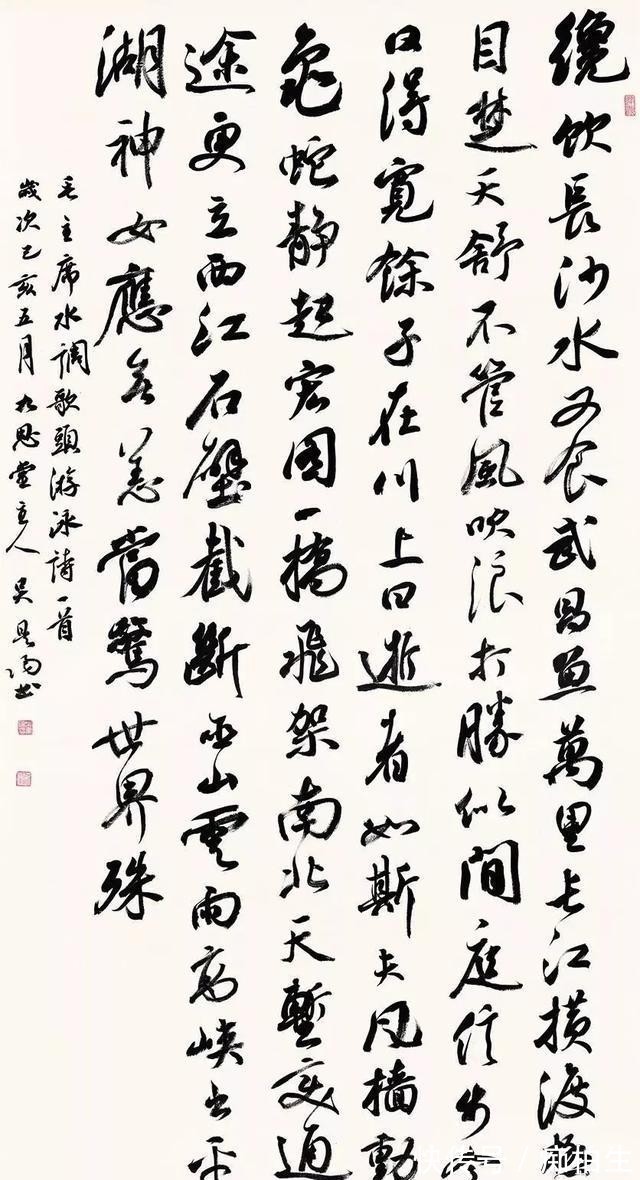 纔飲長沙水又食武昌魚萬里長江橫渡極
目楚天舒不管風吹浪打勝似間庭信步今
日得寬餘子在川上曰逝者如斯夫風檣動
龜蛇靜起宏圖一橋飛架南北天塹變通
途更立西江石壁截斷巫山雲雨高峽出平
湖神女應無恙當驚世界殊
毛主席水調歌頭游泳詩一首
歲次己亥五月九思堂主人吳書
快传号 / 柏生